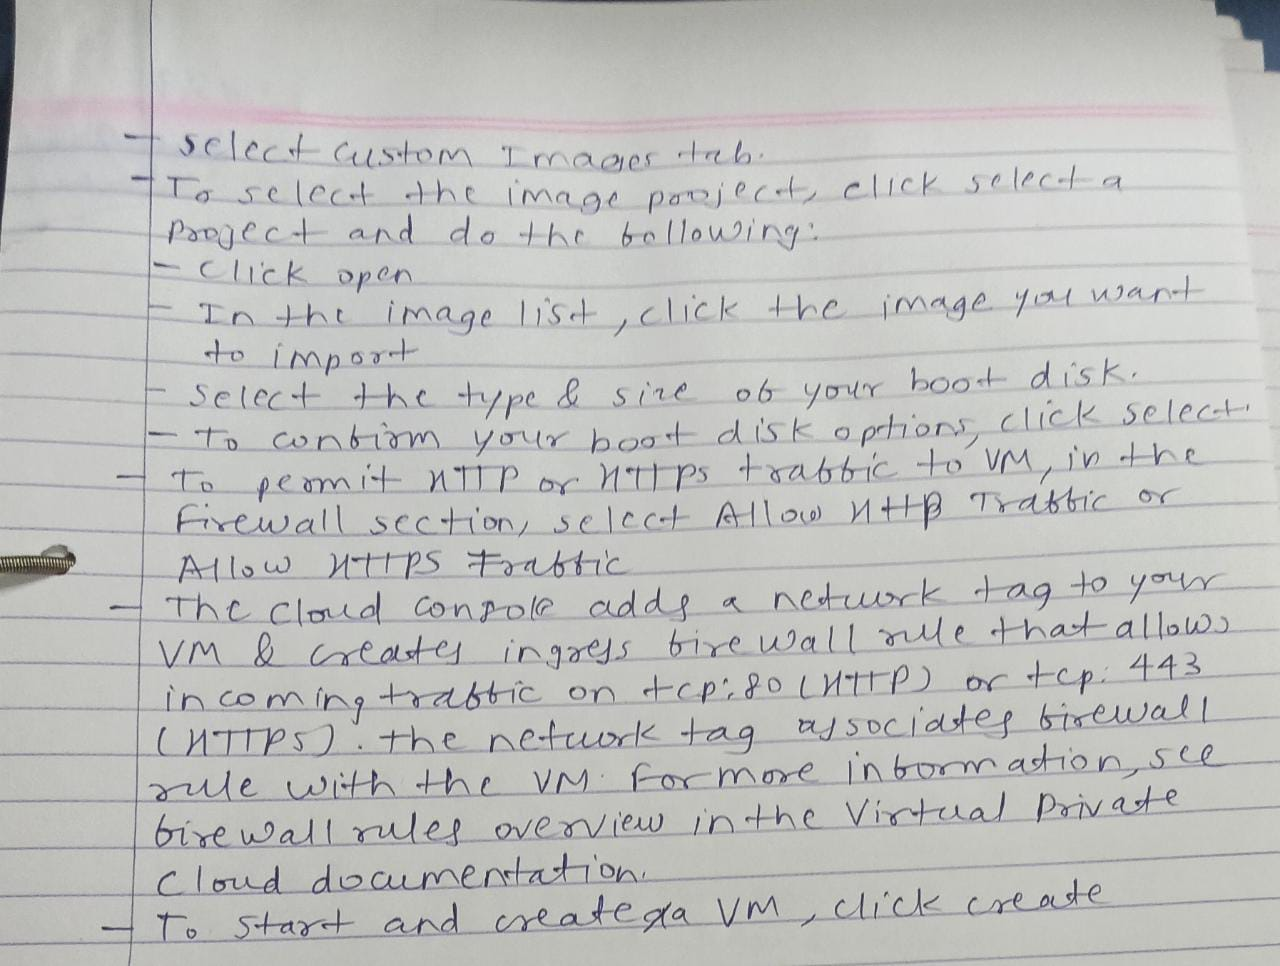 - select custom Images tab.
- To select the image project, click select a
project and do the following:
- Click open
- In the image list, click the image you want
to import
- select the type & size of your boot disk.
- To confirm your boot disk options, click select.
- To permit HTTP or HTTPS traffic to VM, in the
Firewall section, select Allow HTTP Traffic or
Allow HTTPS traffic
- The cloud console adds a network tag to your
VM & creates ingress firewall rule that allows
incoming traffic on tcp:80 (HTTP) or tcp: 443
(HTTPS). the network tag associates firewall
rule with the VM. For more information, see
firewall rules overview in the Virtual Private
Cloud documentation.
- To start and create a VM, click create